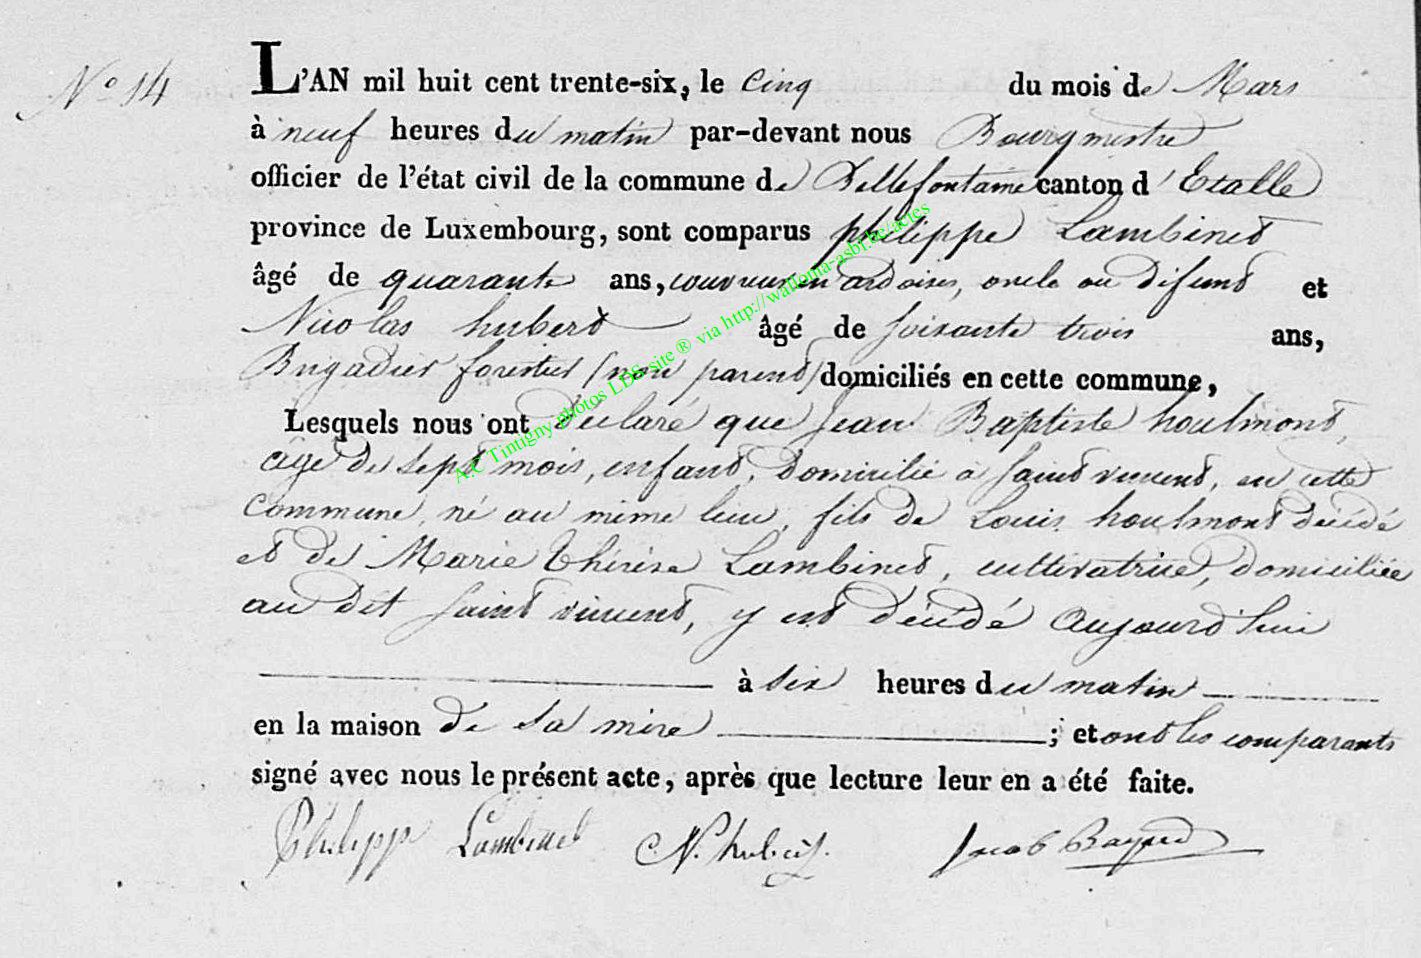 N° 14
L'AN mil huit cent trente-six, le Cinq du mois de Mars
à neuf heures du matin par-devant nous Bourgmestre
officier de l'état civil de la commune de Bellefontaine canton d'Etalle
province de Luxembourg, sont comparus philippe Lambinet
âgé de quarante ans, couvreur en ardoises, oncle au défunt et
Nicolas hubert âgé de soixante trois ans,
Brigadier forestier (non parent) domiciliés en cette commune,
Lesquels nous ont déclaré que Jean Baptiste houlmont,
âgé de sept mois, enfant, domicilié à saint vincent, en cette
commune, né au même lieu, fils de Louis houlmont décédé
et de Marie thérèse Lambinet, cultivatrice, domiciliée
au dit saint vincent, y est décédé aujourd'hui
à six heures du matin
en la maison de sa mère ; et ont les comparants
signé avec nous le présent acte, après que lecture leur en a été faite.
Philippe Lambinet N. hubert Jacob Bayard
A.C Tintigny photos LDS site ® via http://wallonia-asbl.be/actes